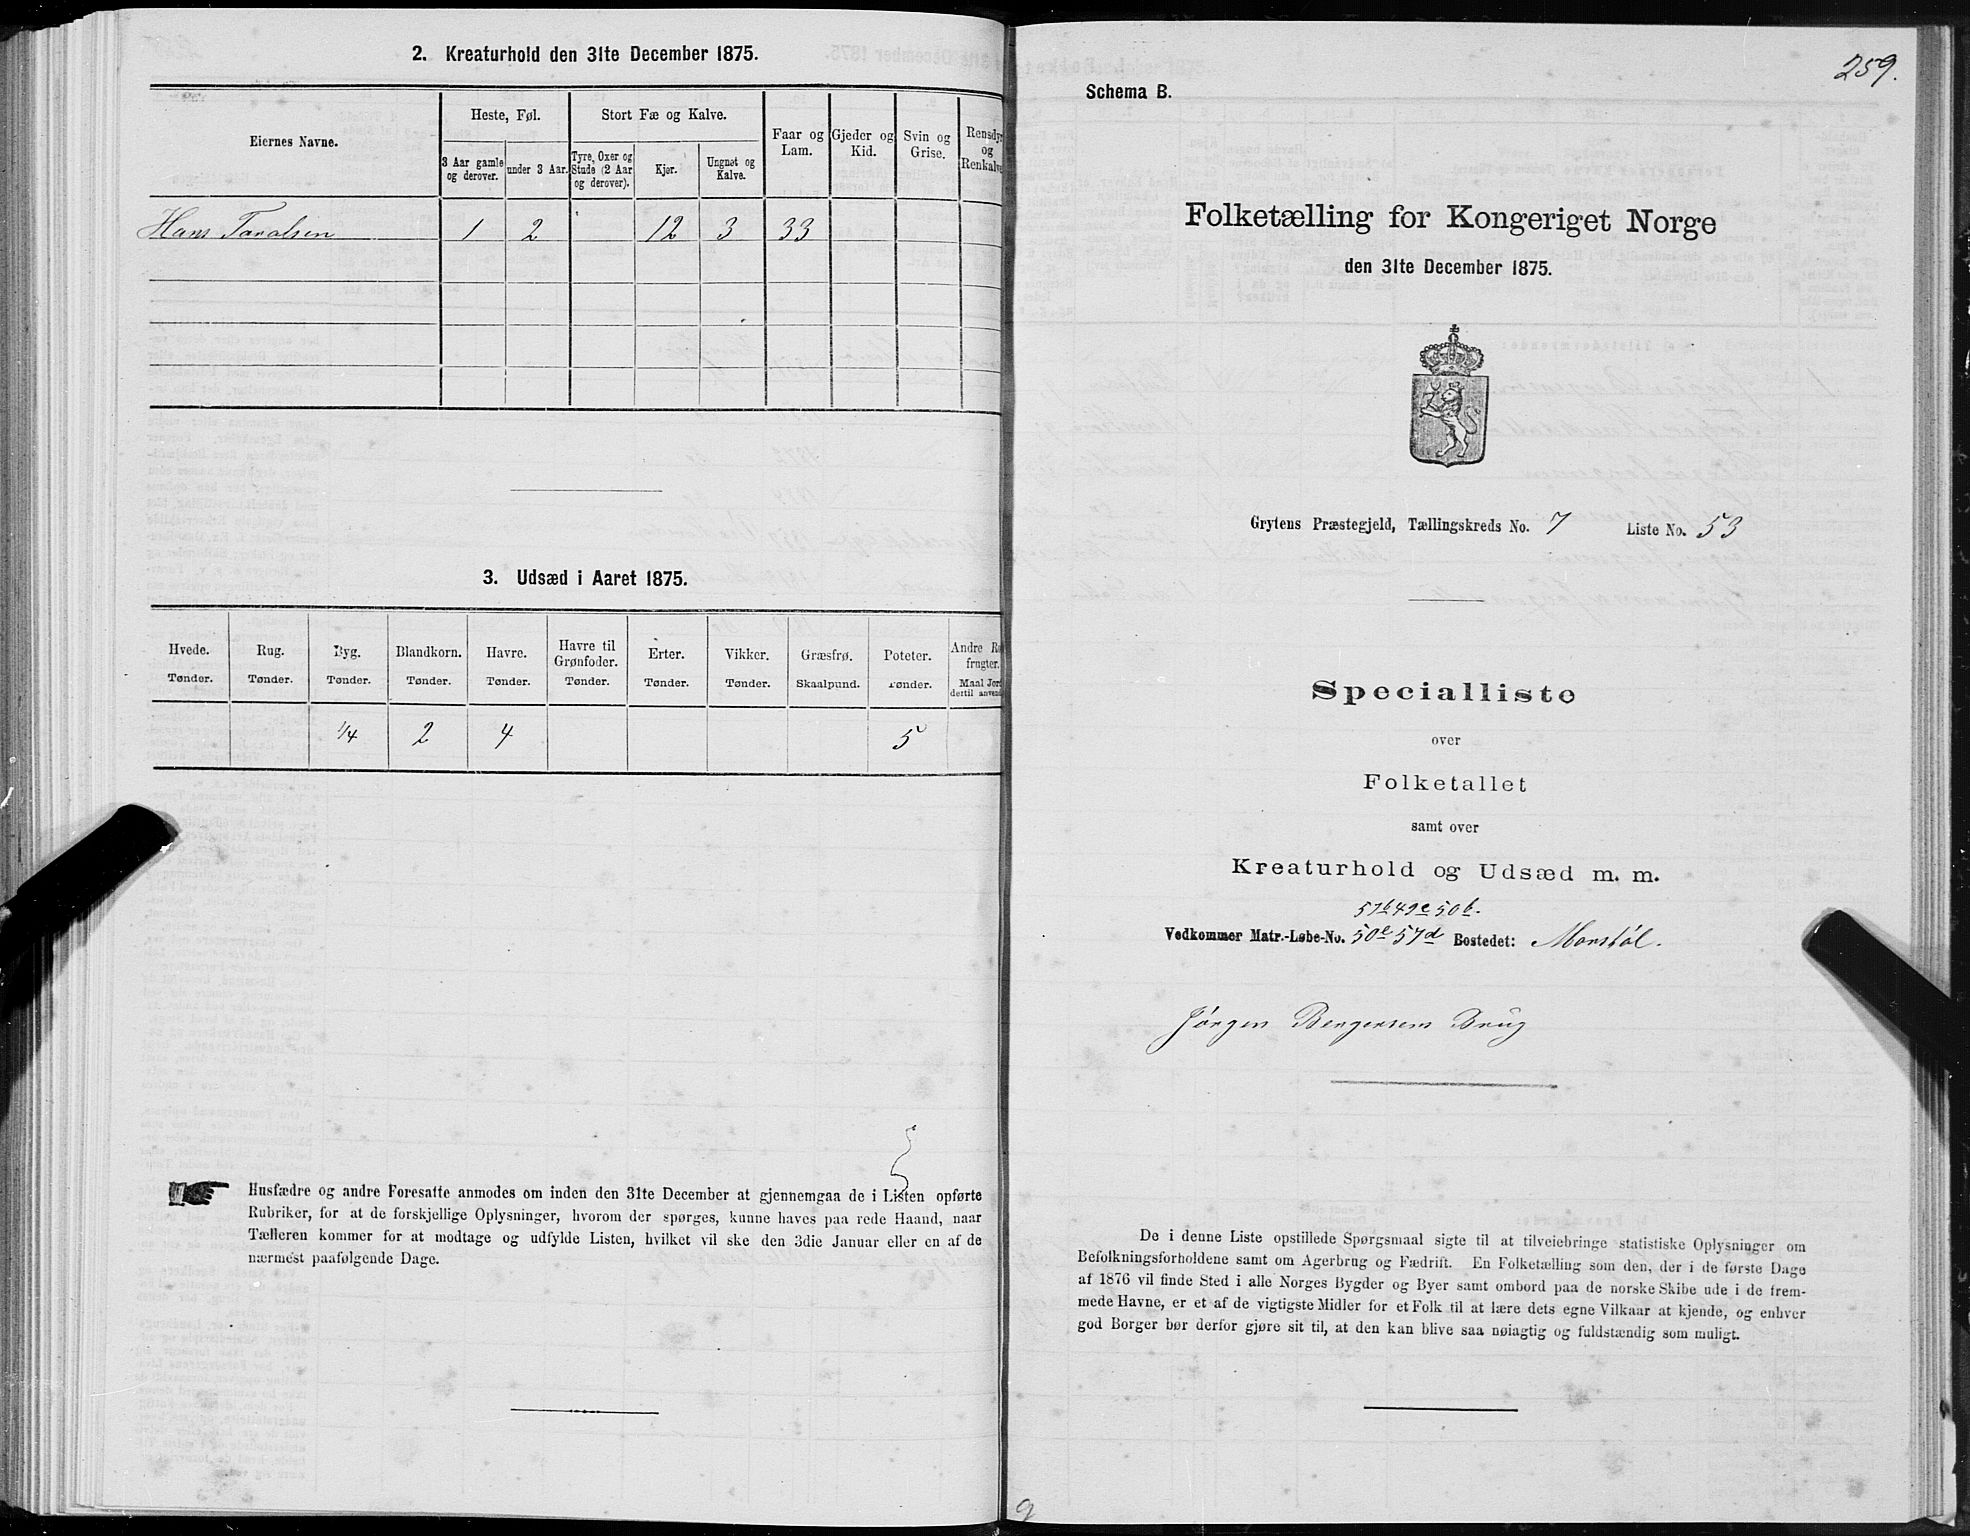 2. Kreaturhold den 31te December 1875.
Eiernes Navne.
Heste, Føl.
Stort Fæ og Kalve.
Faar og Lam.
Gjeder og Kid.
Svin og Grise.
Rensdyr og Renkalve
3 Aar gamle og derover.
under 3 Aar.
Tyre, Oxer og Stude (2 Aar og derover).
Kjør.
Ungnøt og Kalve.
Hans 1 2 12 3 33
3. Udsæd i Aaret 1875.
Hvede. Rug. Byg. Blandkorn. Havre. Havre til Grønfoder. Erter. Vikker. Græsfrø. Poteter. Andre Ro frugter.
Tønder. Tønder. Tønder. Tønder. Tønder. Tønder. Tønder. Tønder. Skaalpund. Tønder. Maal Jord dertil anvend
1/4 2 4 5
Husfædre og andre Foresatte anmodes om inden den 31te December at gjennemgaa de i Listen opførte
Rubriker, for at de forskjellige Oplysninger, hvorom der spørges, kunne haves paa rede Haand, naar
Tælleren kommer for at modtage og udfylde Listen, hvilket vil ske den 3die Januar eller en af de
nærmest paafølgende Dage.
259.
Schema B.
Folketælling for Kongeriget Norge
den 31te December 1875.
Grytens Præstegjeld, Tællingskreds No. 7 Liste No. 53
Specialliste
over
Folketallet
samt over
Kreaturhold og Udsæd m. m.
57b 49c 50b.
Vedkommer Matr.-Løbe-No. 50e 57d Bostedet: Monstøl.
Jørgen Bergersens Brug
De i denne Liste opstillede Spørgsmaal sigte til at tilveiebringe statistiske Oplysninger om
Befolkningsforholdene samt om Agerbrug og Fædrift. En Folketælling som den, der i de første Dage
af 1876 vil finde Sted i alle Norges Bygder og Byer samt ombord paa de norske Skibe ude i de frem-
mede Havne, er et af de vigtigste Midler for et Folk til at lære dets egne Vilkaar at kjende, og enhver
god Borger bør derfor gjøre sit til, at den kan blive saa nøiagtig og fuldstændig som muligt.